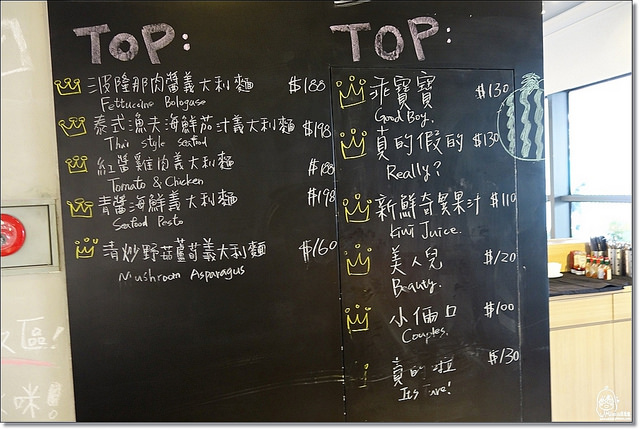 TOP:
波隆那肉醬義大利麵 $188
Fettuccine Bolognese
泰式漁夫海鮮茄汁義大利麵 $198
Thai style seafood
紅醬雞肉義大利麵 $188
Tomato & Chicken
青醬海鮮義大利麵 $198
Seafood Pesto
清炒野菇蘆筍義大利麵 $160
Mushroom Asparagus
TOP:
乖寶寶 $130
Good Boy.
真的假的 $130
Really?
新鮮奇異果汁 $110
Kiwi Juice.
美人兒 $120
Beauty.
小倆口 $100
Couples.
真的啦 $130
區!
咪!